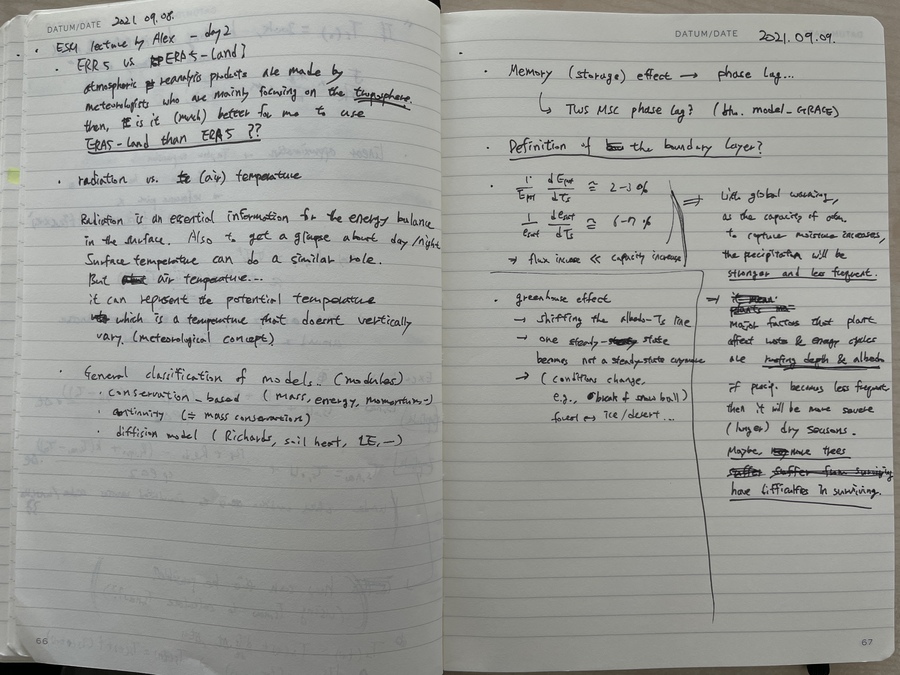 DATUM/DATE 2021.09.08.
· ESM lecture by Alex - day2
· ERR5 vs ERA5-land?
atmospheric reanalysis products are made by
meteorologists who are mainly focusing on the troposphere.
then, is it (much) better for me to use
ERA5-land than ERA5 ??
· radiation vs. (air) temperature
Radiation is an essential information for the energy balance
in the surface. Also to get a glimpse about day/night.
Surface temperature can do a similar role.
But air temperature...
it can represent the potential temperature
which is a temperature that doesn't vertically
vary. (meteorological concept)
· General classification of models.. (modules)
· conservation-based (mass, energy, momentum-)
· continuity (≒ mass conservation)
· diffision model (Richards, soil heat, LE, -)
66
DATUM/DATE 2021.09.09.
· Memory (storage) effect → phase lag...
↳ TWS MSC phase lag? (btn. model-GRACE)
· Definition of the boundary layer?
· 1/Epot dEpot/dTs ≅ 2-3 %
1/esat desat/dTs ≅ 6-7 %
→ flux increase << capacity increase
⇒ With global warming,
as the capacity of atm.
to capture moisture increases,
the precipitation will be
stronger and less frequent.
· greenhouse effect
→ shifting the albedo-Ts line
→ one steady-state
becomes not a steady-state anymore
→ (conditions change,
e.g., break of snow ball)
forest ↔ ice/desert...
→ major factors that plant
affect water & energy cycles
are rooting depth & albedo
if precip. becomes less frequent
then it will be more severe
(longer) dry seasons.
Maybe, more trees
have difficulties in surviving.
67